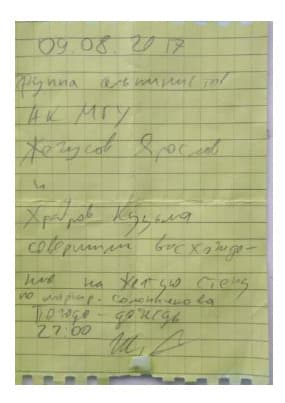 09.08.2017
группа альпинистов
АК МГУ
Ярослав
и
Храбров Кузьма
совершили восхожде-
ние на Желтую стену
по маршр. Солонникова
Погода - дождь
27:00